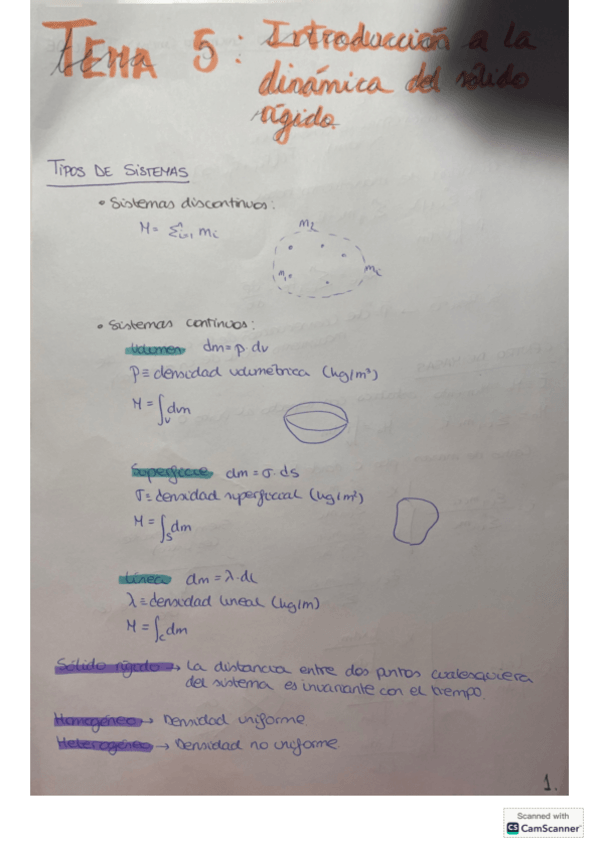 TEMA 5: Introducción a la
dinámica del sólido
rígido.
TIPOS DE SISTEMAS
• Sistemas discontinuos:
M = Σⁿᵢ₌₁ mᵢ
• Sistemas continuos:
Volumen dm = ρ·dv
ρ ≡ densidad volumétrica (kg/m³)
M = ∫ᵥ dm
Superficie dm = σ·ds
σ ≡ densidad superficial (kg/m²)
M = ∫ₛ dm
Línea dm = λ·dL
λ ≡ densidad lineal (kg/m)
M = ∫c dm
Sólido rígido → La distancia entre dos puntos cualesquiera
del sistema es invariante con el tiempo.
Homogéneo → Densidad uniforme
Heterogéneo → Densidad no uniforme
1.
Scanned with
CS CamScanner